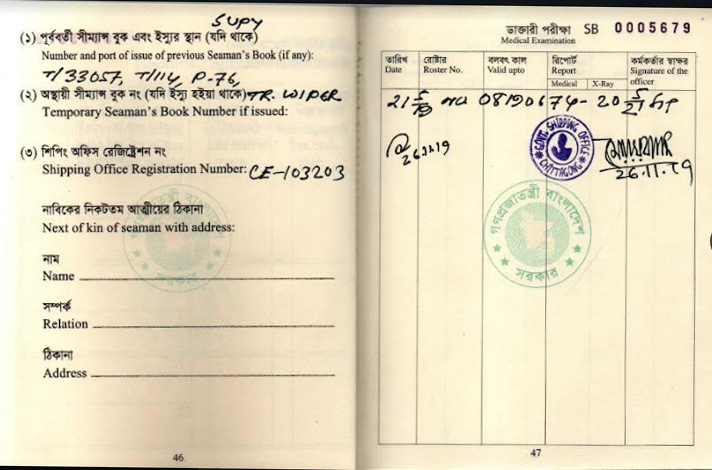 SUPY
(১) পূর্ববর্তী সীম্যান্স বুক এবং ইস্যুর স্থান (যদি থাকে)
Number and port of issue of previous Seaman's Book (if any):
T/33057, T/114, P-76,
(২) অস্থায়ী সীম্যান্স বুক নং (যদি ইস্যু হইয়া থাকে) TR. WIPER
Temporary Seaman's Book Number if issued:
(৩) শিপিং অফিস রেজিষ্ট্রেশন নং
Shipping Office Registration Number: CE-103203
নাবিকের নিকটতম আত্মীয়ের ঠিকানা
Next of kin of seaman with address:
নাম
Name
সম্পর্ক
Relation
ঠিকানা
Address
46
ডাক্তারী পরীক্ষা SB 0005679
Medical Examination
তারিখ রোষ্টার বলবৎ কাল রিপোর্ট কর্মকর্তার স্বাক্ষর
Date Roster No. Valid upto Report Signature of the officer
Medical X-Ray
21 5/19 08190674-20 5/21
26.11.19
GOVT. SHIPPING OFFICE
CHITTAGONG
26.11.19
গণপ্রজাতন্ত্রী বাংলাদেশ
সরকার
47